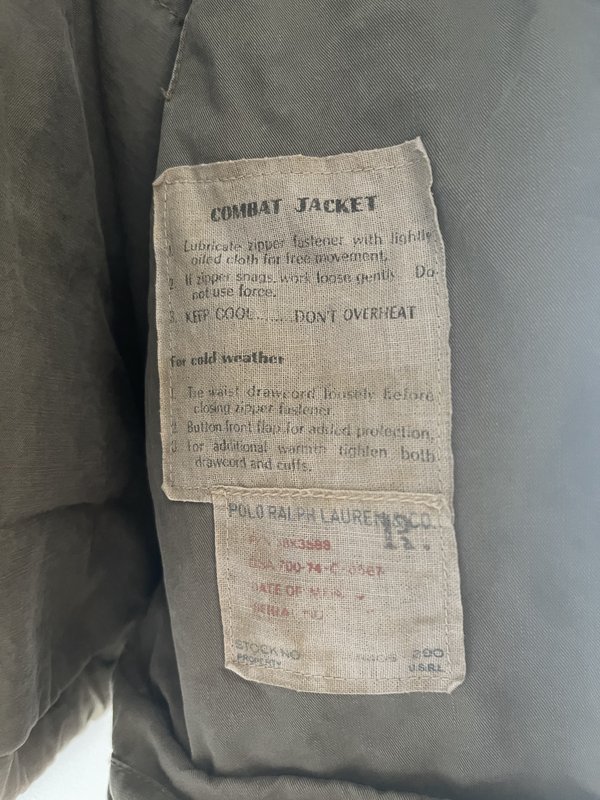 COMBAT JACKET
1. Lubricate zipper fastener with lightly
oiled cloth for free movement.
2. If zipper snags, work loose gently. Do
not use force.
3. KEEP COOL......DON'T OVERHEAT
for cold weather
1. Tie waist drawcord loosely before
closing zipper fastener
2. Button front flap for added protection.
3. For additional warmth tighten both
drawcord and cuffs.
POLO RALPH LAUREN CO.
R.
DATE OF
SERIAL NO
STOCK NO 290
PROPERTY U.S.R.L